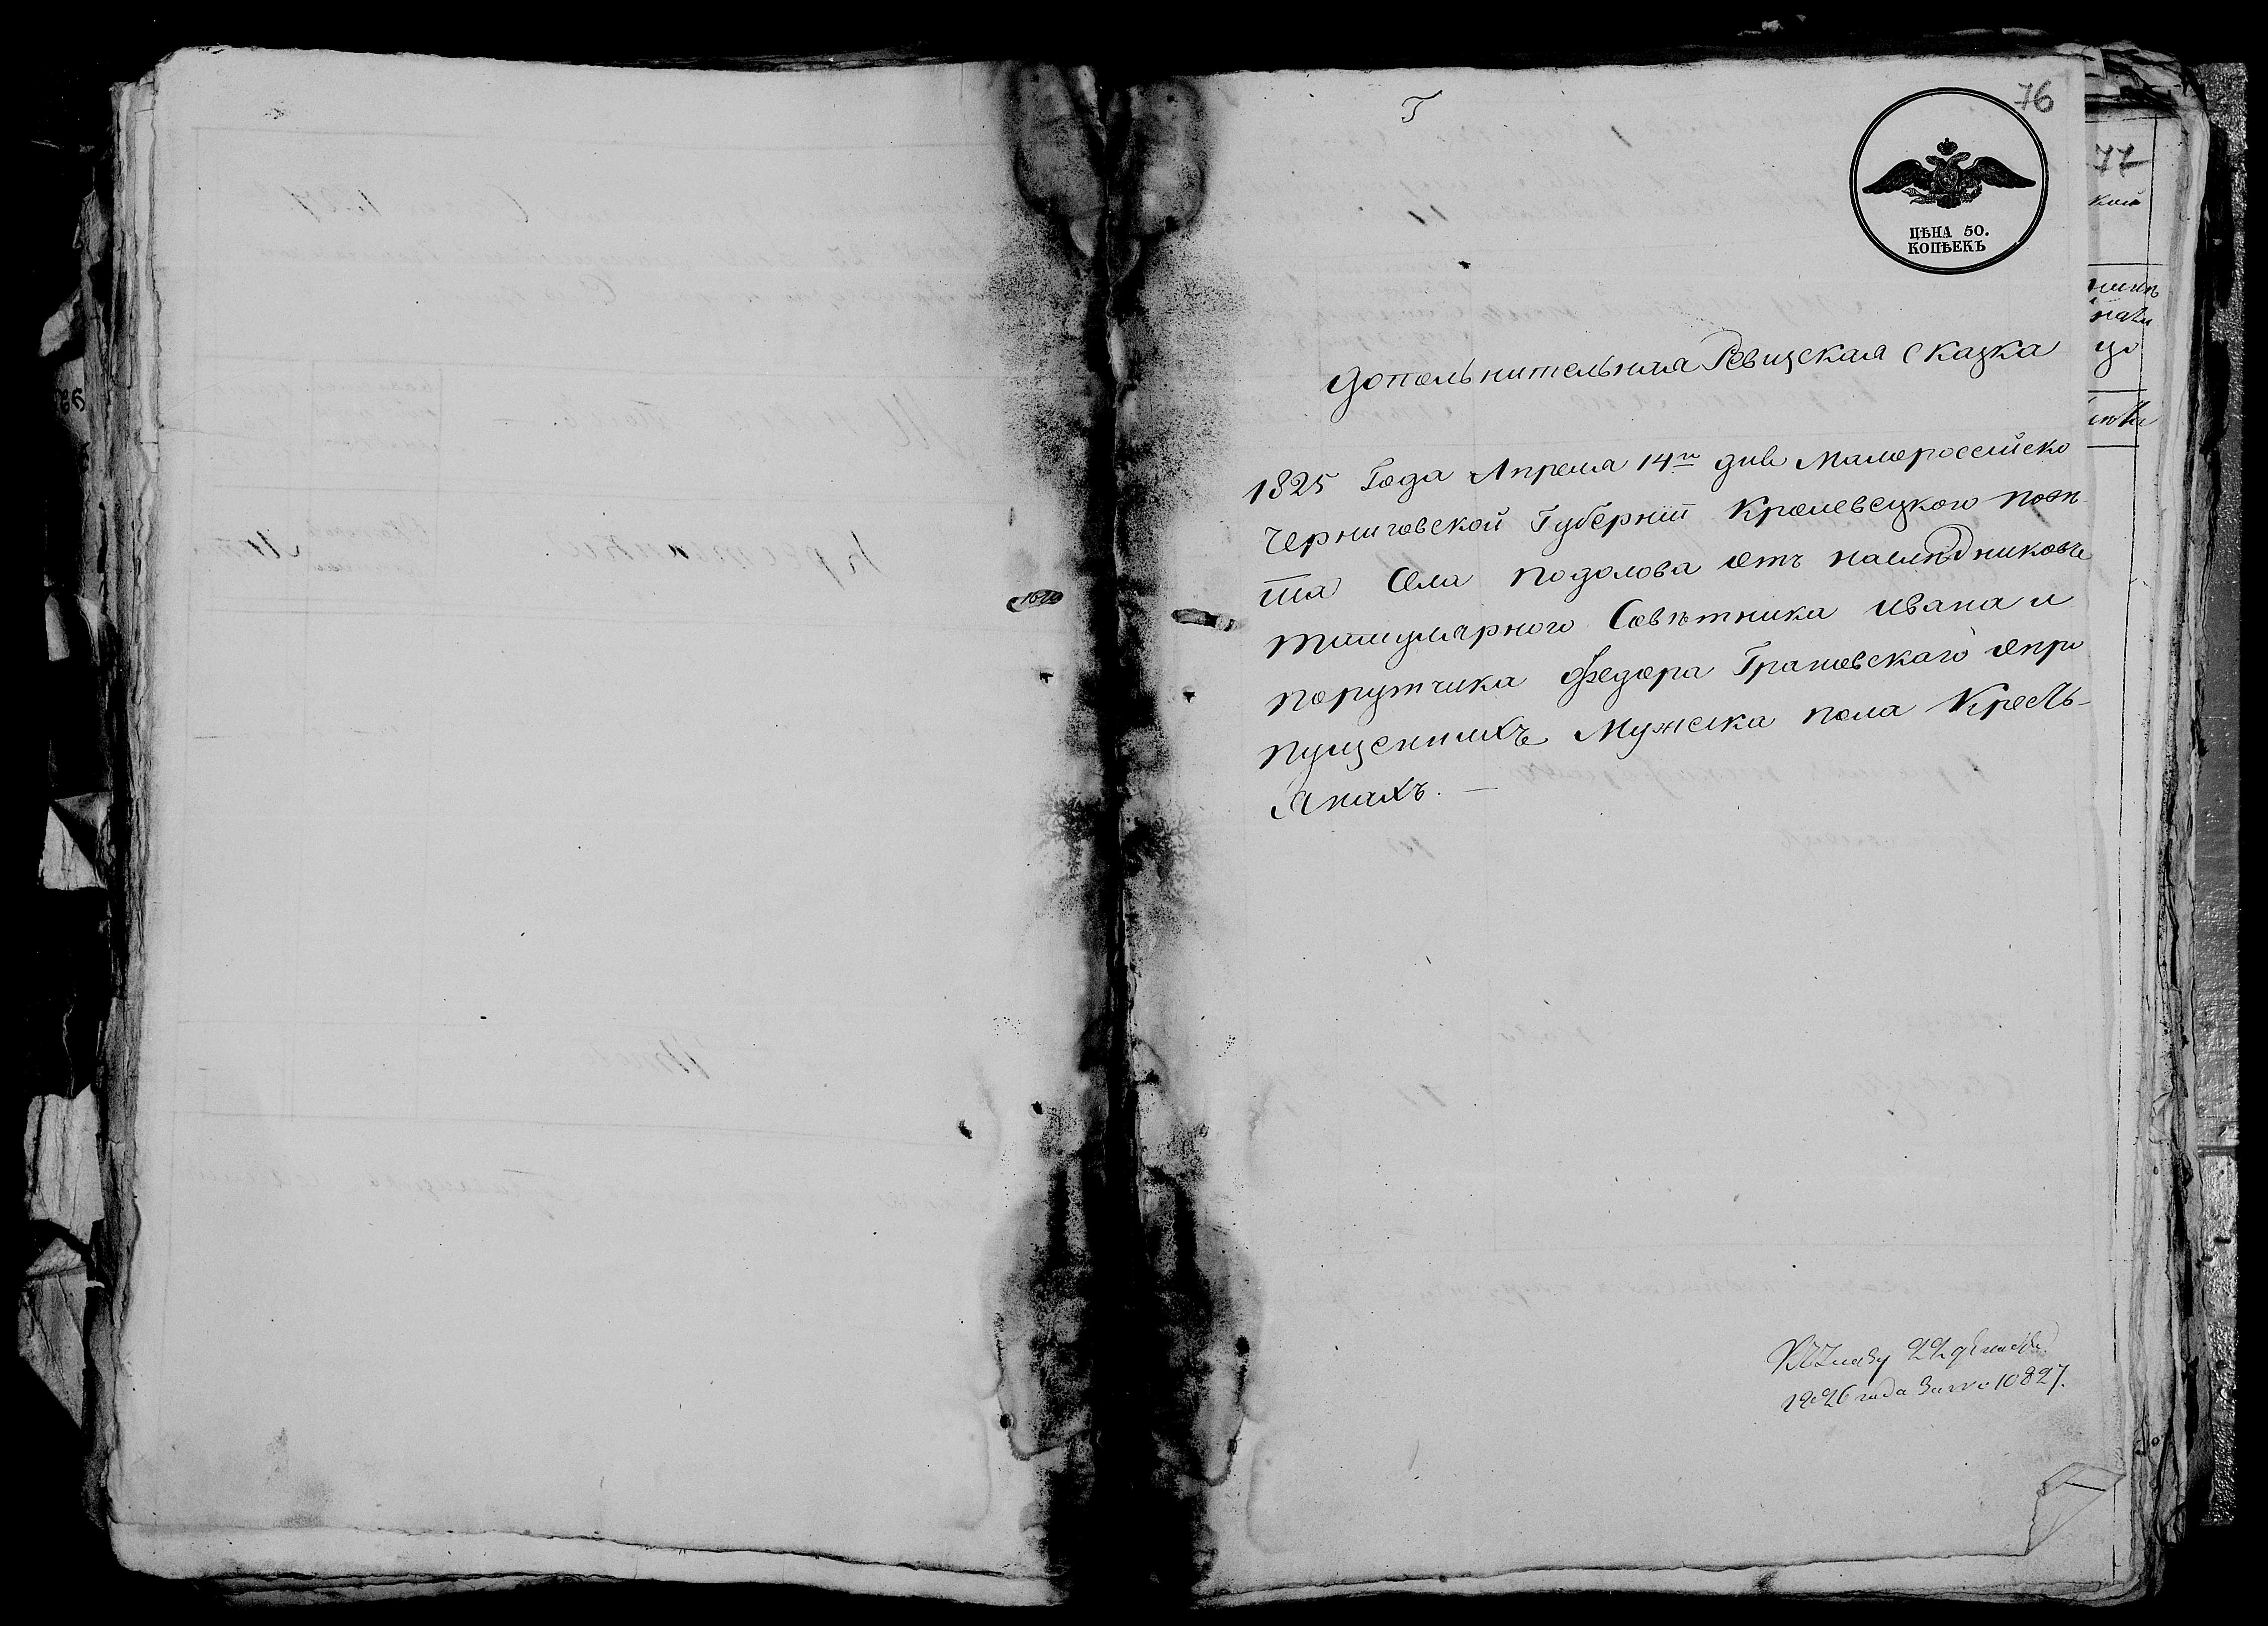 Т
76
77
ЦѢНА 50.
КОПѢЕКЪ
Дополнительная Ревизская Сказка
1825 Года Апреля 14го дня Малороссійско
Черниговской Губерніи Кролевецкого повѣ
та Села Подолова отъ наслѣдниковъ
титулярного Совѣтника Ивана и
порутчика Федора Грановскаго о про
пущенныхъ Мужеска пола Кресть-
янахъ. —
22 декабря
1826 года за № 10827.